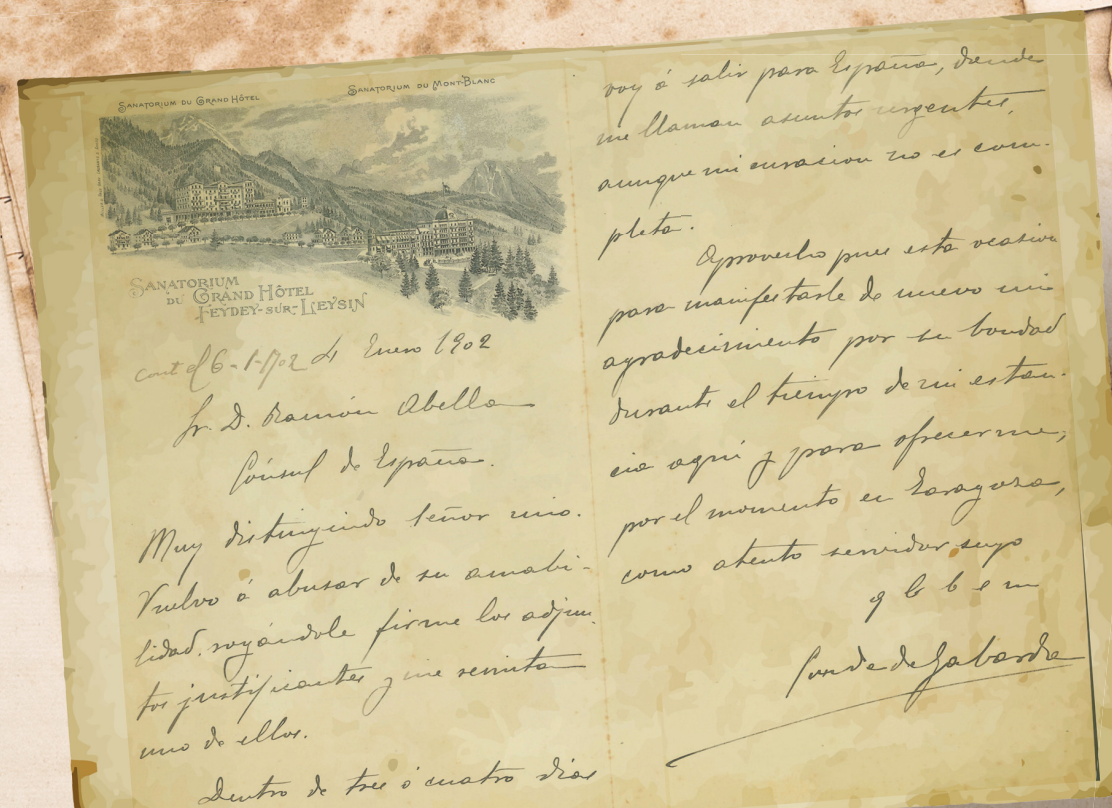 SANATORIUM DU GRAND HÔTEL
SANATORIUM DU MONT-BLANC
SANATORIUM
DU GRAND HÔTEL
FEYDEY-SUR-LEYSIN
cont el 6-1-902 4 Enero 1902
Sr. D. Ramón Abella
Cónsul de España.
Muy distinguido señor mio.
Vuelvo á abusar de su amabi-
lidad, rogándole firme los adjun-
tos justificantes y me remita
uno de ellos.
Dentro de tres ó cuatro dias
voy á salir para España, donde
me llaman asuntos urgentes,
aunque mi curacion no es com-
pleta.
Aprovecho pues esta ocasion
para manifestarle de nuevo mi
agradecimiento por su bondad
durante el tiempo de mi estan-
cia aqui y para ofrecerme,
por el momento en Zaragoza,
como atento servidor suyo
q b b e m
Conde de Gabarda